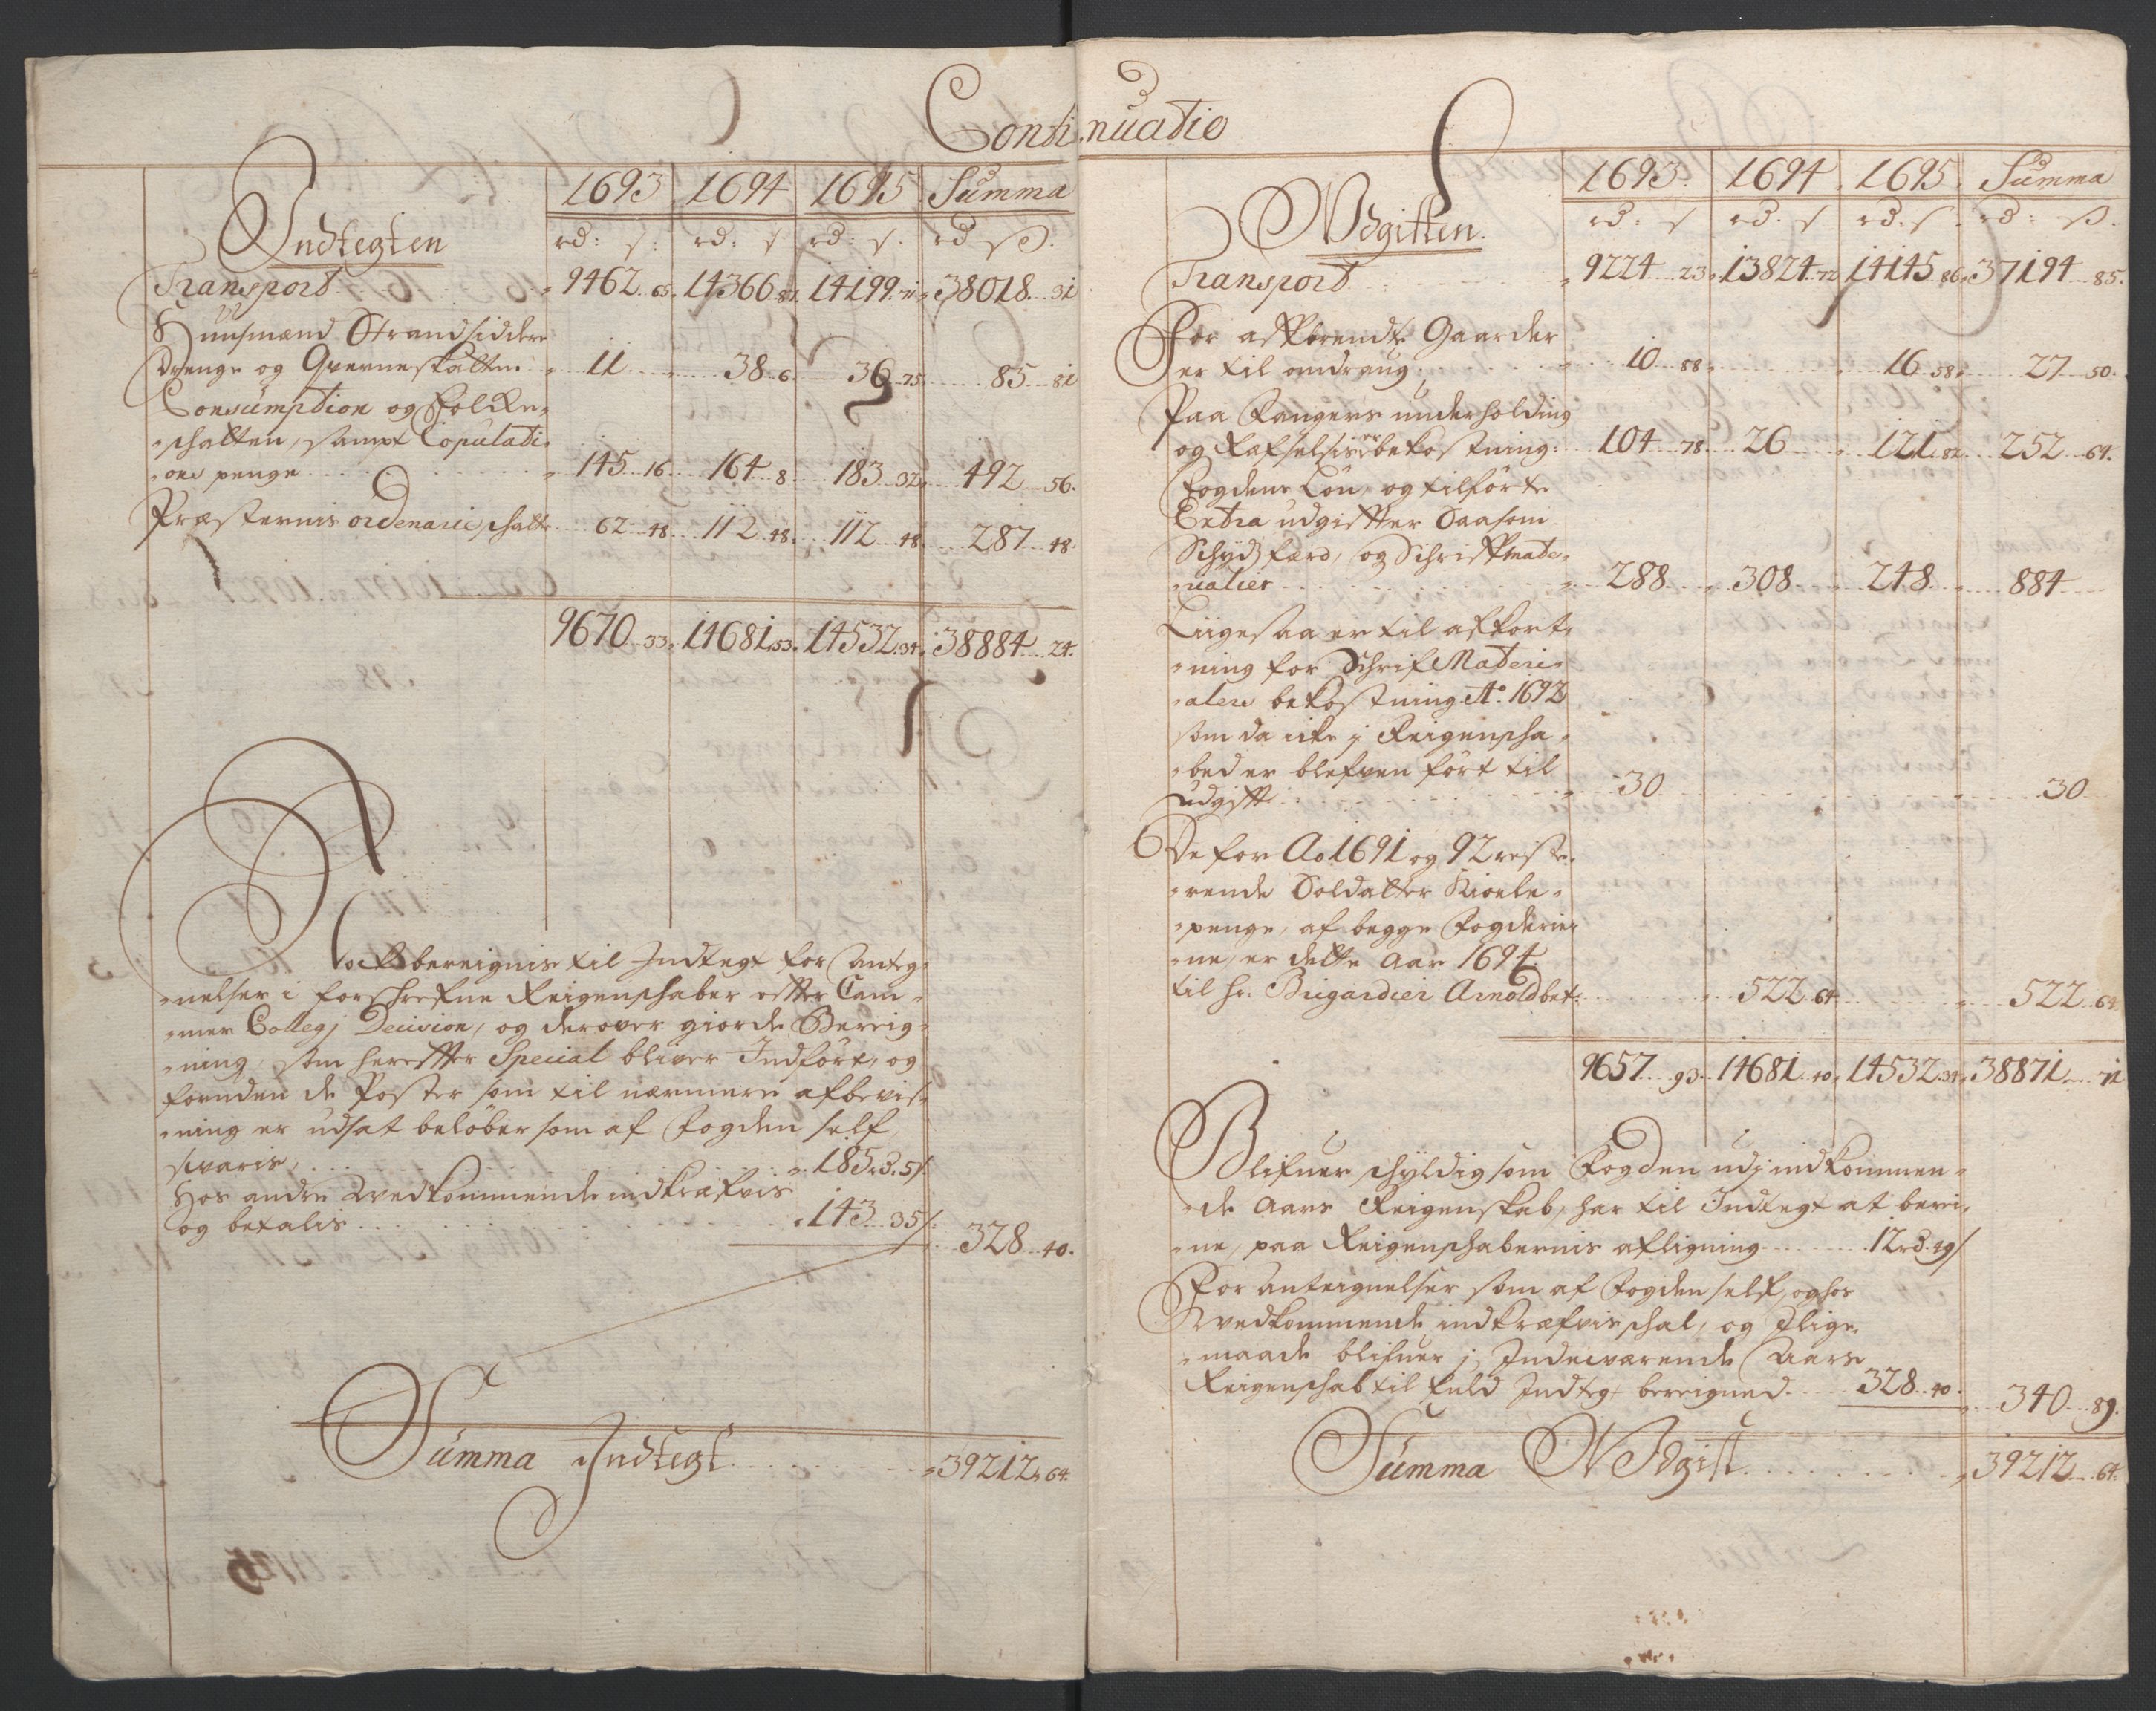 Continuatio
Indtegten
1693 1694 1695 Summa
rd: s. rd: s rd: s. rd s.
Transport 9462 65. 14366 81. 14199 71. 38018 31
Huusmænd Strandsiddere
Drenge og Qverneskatten 11 38 6. 36 75. 85 81
Consumption og Folke-
schatten, sampt Copulati-
ons penge 145 16. 164 8. 183 32. 492 56.
Præsternis ordenarie schatt 62 48. 112 48. 112 48. 287 48.
9670 33. 14681 53. 14532 34. 38884 24.
bereignis til Indtegt for Anteg-
nelser i forschrefne Reigenschaber effter Cam-
mer Collegj Decision, og derover giorde Bereig-
ning, som hereffter Special bliver Indført, og
foruden de Poster som til nærmere afbevis-
ning er udsat beløber som af Fogden self
svaris, 185 rd. 5 s.
Hos andre Vedkommende indkræfvis
og betalis 143 35 s: 328 40.
Summa Indtegt 39212 64.
Udgifften.
1693. 1694 1695. Summa
rd: s rd. s rd. s. rd: s.
Transport 9224 23. 13824 72 14145 86. 37194 85.
For afbrendte Gaarder
er til omdraug 10 88. 16 58. 27 50.
Paa Fangers underholding
og Rafselsis bekostning: 104 78. 26 121 82 252 64.
Fogdens Løn, og tilførte
Extra udgiffter Saasom
Schydsfærd, og Schriffmate-
rialier 288 308 248 884
Liigesaa er til afkort-
ning for Schrif Materi-
alers bekostning Ao. 1692
som da icke j Reigenscha-
bed er blefven ført til
udgifft 30 30
De for Ao 1691 og 92 reste-
rende Soldatter Kiole-
penge, af begge Fogderier-
ne, er dette Aar 1694
til Hr. Brigardier Arnold bet: 522 64 522 64
9657 93. 14681 40. 14532 34. 38871 71
Blifuer schyldig som Fogden udj indkommen-
de Aars Reigenskab, har til Indtegt at berei-
ne, paa Reigenschabernis afligning 12 rd. 49 s
For Anteignelser som af Fogden self, og hos
Vedkommende indkræfvis schal, og I lige
maade blifuer j Indeværende Aars
Reigenschab til fuld Indtegt bereigned 328 40. 340 89.
Summa Udgift 39212 64.